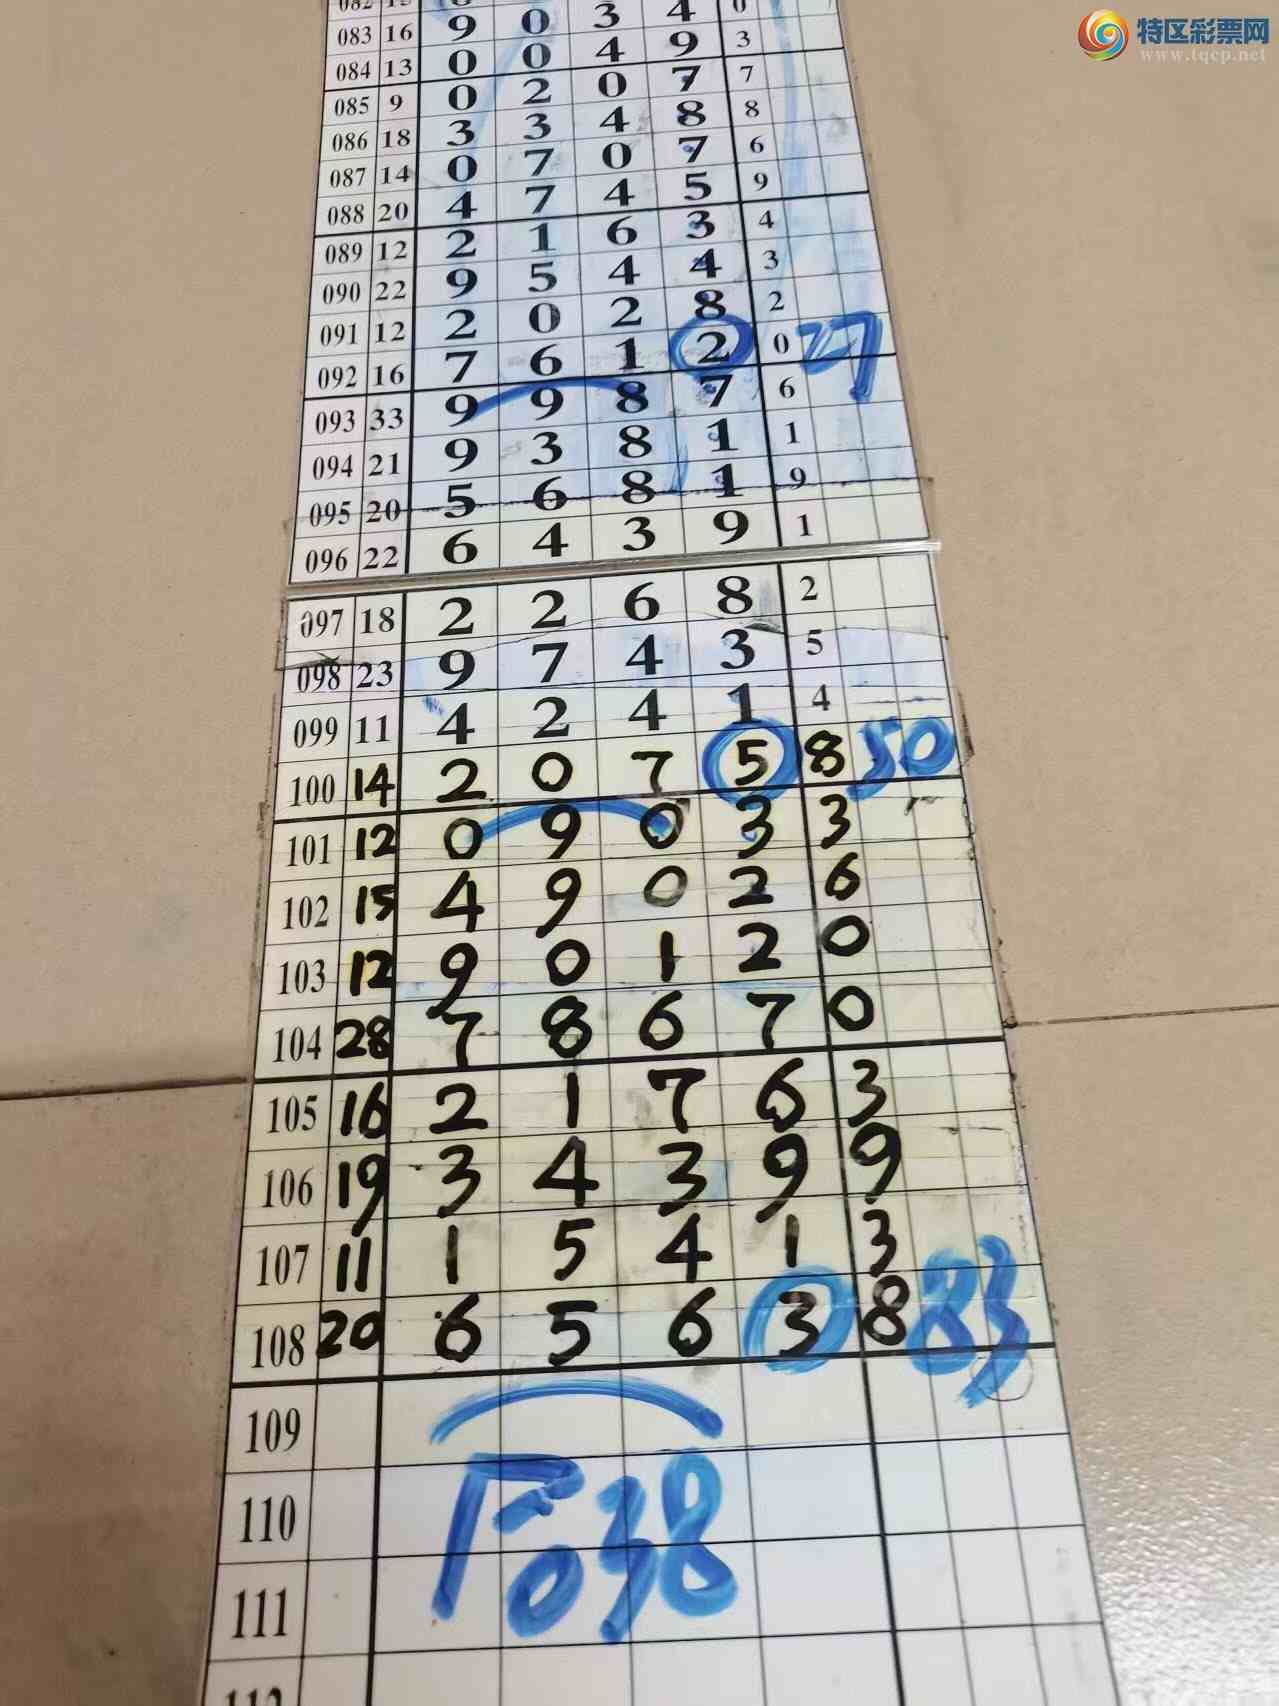 特区彩票网
www.tqcp.net
083 16 9 0 3 4 0
084 13 0 0 4 9 3
085 9 0 2 0 7 7
086 18 3 3 4 8 8
087 14 0 7 0 7 6
088 20 4 7 4 5 9
089 12 2 1 6 3 4
090 22 9 5 4 4 3
091 12 2 0 2 8 2
092 16 7 6 1 2 0 27
093 33 9 9 8 7 6
094 21 9 3 8 1 1
095 20 5 6 8 1 9
096 22 6 4 3 9 1
097 18 2 2 6 8 2
098 23 9 7 4 3 5
099 11 4 2 4 1 4
100 14 2 0 7 5 8 50
101 12 0 9 0 3 3
102 15 4 9 0 2 6
103 12 9 0 1 2 0
104 28 7 8 6 7 0
105 16 2 1 7 6 3
106 19 3 4 3 9 9
107 11 1 5 4 1 3
108 20 6 5 6 3 8 83
109
110
038
111